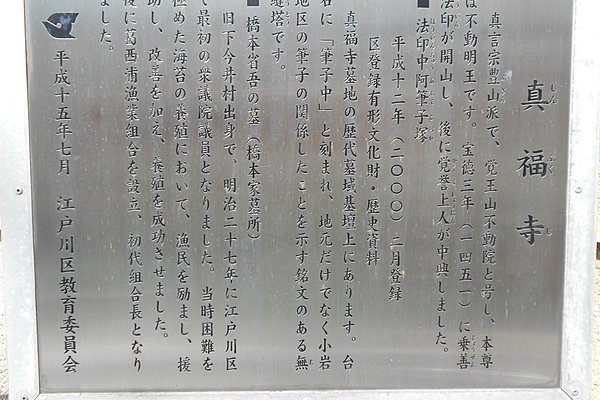 真福寺
しんふくじ
真言宗豊山派で、覚王山不動院と号し、本尊
は不動明王です。宝徳三年（一四五一）に乗善
法印が開山し、後に覚誉上人が中興しました。
■法印中阿筆子塚
区登録有形文化財・歴史資料
平成十二年（二〇〇〇）二月登録
真福寺墓地の歴代墓域基壇上にあります。台
石に「筆子中」と刻まれ、地元だけでなく小岩
地区の筆子の関係したことを示す銘文のある無
縫塔です。
■橋本省吾の墓（橋本家墓所）
旧下今井村出身で、明治二十七年に江戸川区
で最初の衆議院議員となりました。当時困難を
極めた海苔の養殖において、漁民を励まし、援
助し、改善を加え、養殖を成功させました。
後に葛西浦漁業組合を設立、初代組合長となり
ました。
平成十五年七月　江戸川区教育委員会